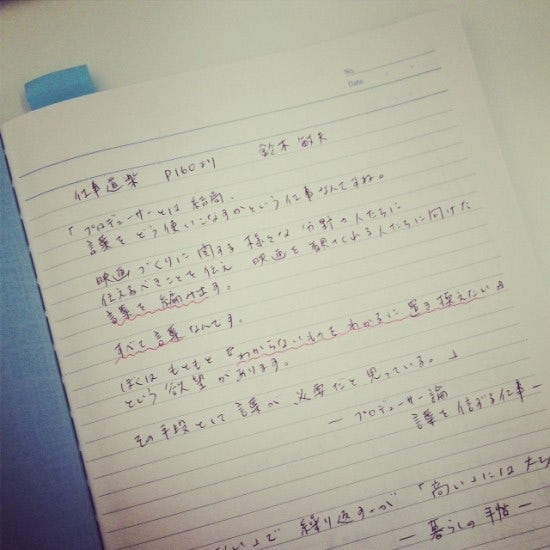 No.
Date
仕事道楽 P160より 鈴木敏夫
「プロデューサーとは結局、
言葉をどう使いこなすかという仕事なんですね。
映画づくりに関する様々な分野の人たちに
伝えるべきことを伝え 映画を観てくれる人たちに向けた
言葉を編み出す。
すべて言葉なんです。
ぼくはもともと『わからないものをわかるに置き換えたい』
という欲望があります。
その手段として言葉が必要だと思っている。」
— プロデューサー論
言葉を信ずる仕事 —
」で繰り返すが「高い」には
— 暮しの手帖 —